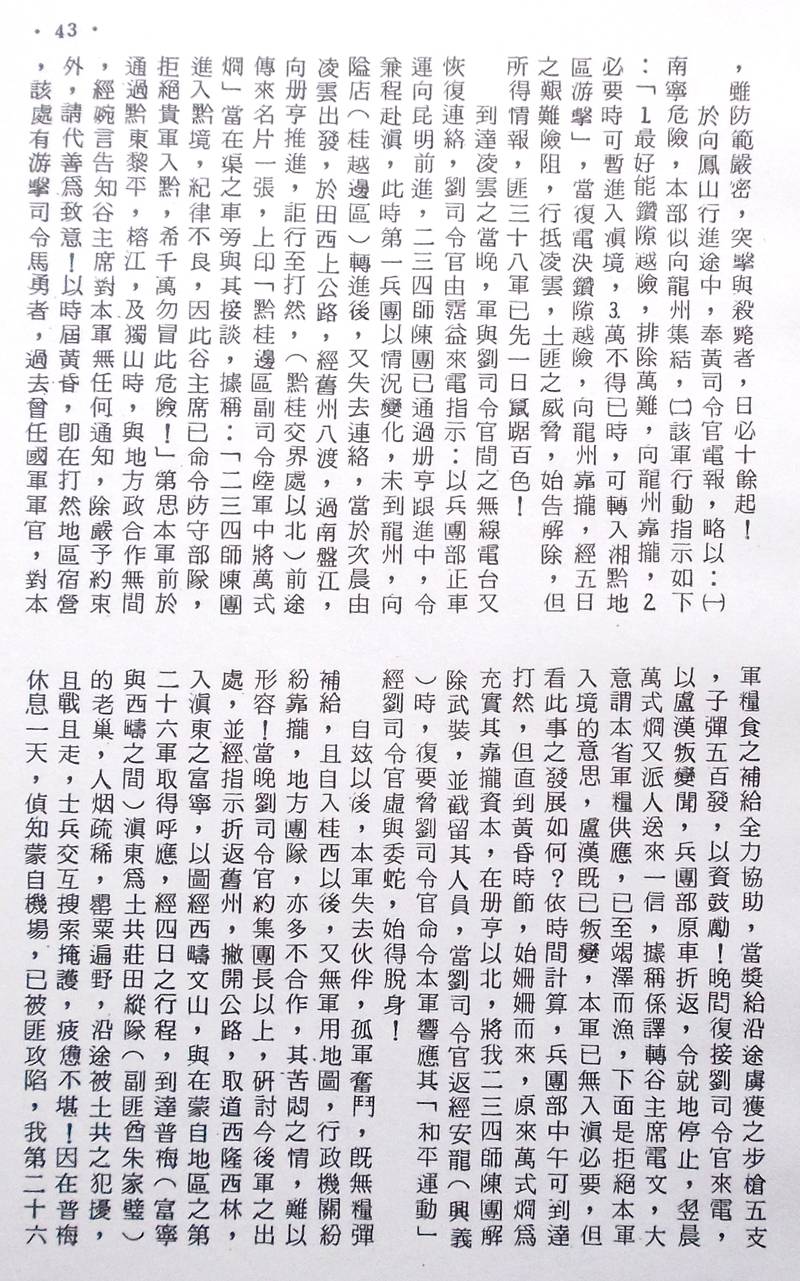 ・43・
，雖防範嚴密，突擊與殺斃者，日必十餘起！
於向鳳山行進途中，奉黃司令官電報，略以：㈠
南寧危險，本部似向龍州集結，㈡該軍行動指示如下
：「1.最好能鑽隙越險，排除萬難，向龍州靠攏，2.
必要時可暫進入滇境，3.萬不得已時，可轉入湘黔地
區游擊」，當復電決鑽隙越險，向龍州靠攏，經五日
之艱難險阻，行抵凌雲，土匪之威脅，始告解除，但
所得情報，匪三十八軍已先一日竄踞百色！
到達凌雲之當晚，軍與劉司令官間之無線電台又
恢復連絡，劉司令官由霑益來電指示：以兵團部正車
運向昆明前進，二三四師陳團已通過册亨跟進中，令
兼程赴滇，此時第一兵團以情況變化，未到龍州，向
隘店（桂越邊區）轉進後，又失去連絡，當於次晨由
凌雲出發，於田西上公路，經舊州八渡，過南盤江，
向册亨推進，詎行至打然，（黔桂交界處以北）前途
傳來名片一張，上印「黔桂邊區副司令陸軍中將萬式
烱」當在渠之車旁與其接談，據稱：「二三四師陳團
進入黔境，紀律不良，因此谷主席已命令防守部隊，
拒絕貴軍入黔，希千萬勿冒此危險！」第思本軍前於
通過黔東黎平，榕江，及獨山時，與地方政合作無間
，經婉言告知谷主席對本軍無任何通知，除嚴予約束
外，請代善爲致意！以時屆黃昏，卽在打然地區宿營
，該處有游擊司令馬勇者，過去曾任國軍軍官，對本
軍糧食之補給全力協助，當獎給沿途虜獲之步槍五支
，子彈五百發，以資鼓勵！晚間復接劉司令官來電，
以盧漢叛變聞，兵團部原車折返，令就地停止，翌晨
萬式烱又派人送來一信，據稱係譯轉谷主席電文，大
意謂本省軍糧供應，已至竭澤而漁，下面是拒絕本軍
入境的意思，盧漢既已叛變，本軍已無入滇必要，但
看此事之發展如何？依時間計算，兵團部中午可到達
打然，但直到黃昏時節，始姍姍而來，原來萬式烱爲
充實其靠攏資本，在册亨以北，將我二三四師陳團解
除武裝，並截留其人員，當劉司令官返經安龍（興義
）時，復要脅劉司令官命令本軍響應其「和平運動」
經劉司令官虛與委蛇，始得脫身！
自茲以後，本軍失去伙伴，孤軍奮鬥，既無糧彈
補給，且自入桂西以後，又無軍用地圖，行政機關紛
紛靠攏，地方團隊，亦多不合作，其苦悶之情，難以
形容！當晚劉司令官約集團長以上，研討今後軍之出
處，並經指示折返舊州，撇開公路，取道西隆西林，
入滇東之富寧，以圖經西疇文山，與在蒙自地區之第
二十六軍取得呼應，經四日之行程，到達普梅（富寧
與西疇之間）滇東爲土共莊田縱隊（副匪酋朱家璧）
的老巢，人烟疏稀，罌粟遍野，沿途被土共之犯擾，
且戰且走，士兵交互搜索掩護，疲憊不堪！因在普梅
休息一天，偵知蒙自機場，已被匪攻陷，我第二十六